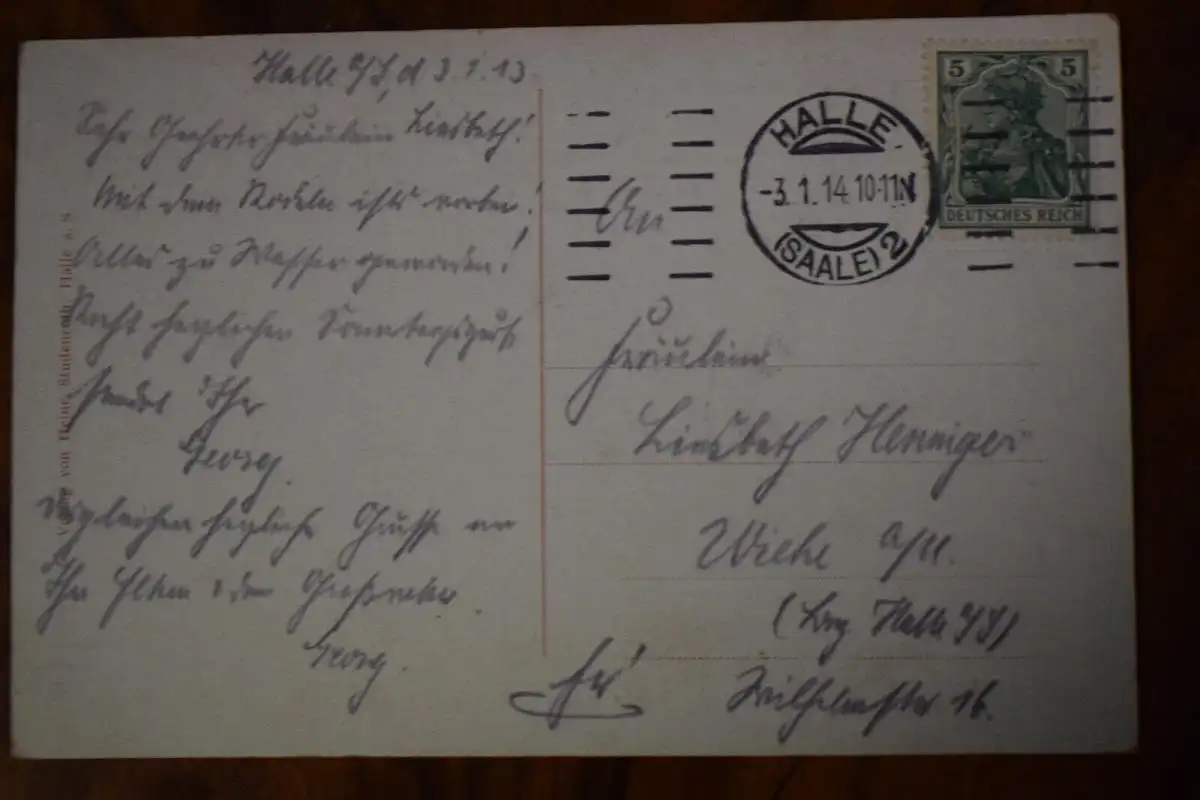 Halle a/S, d 3.1.13
Sehr Geehrtes Fräulein Liesbeth!
Mit dem Rodeln ists vorbei!
Alles zu Wasser geworden!
Recht herzlichen Sonntagsgruß
sendet Ihr
Georg.
Desgleichen herzliche Grüsse an
Ihr Eltern & den Großvater.
Georg.
Verlag von Heinr. Studenroth, Halle a. S
HALLE
-3.1.14 10-11
(SAALE) 2
5 5
DEUTSCHES REICH
An
Fräulein
Liesbeth Henniger
Wiehe a/U.
(Bez Halle a/S)
Wilhelmstr 16.
Fr!